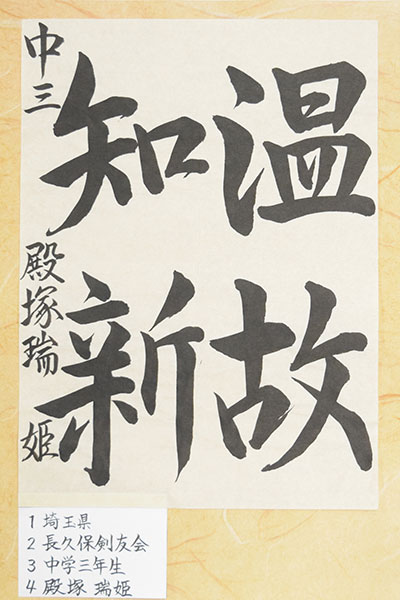 温故
知新
中三 殿塚瑞姫
1 埼玉県
2 長久保剣友会
3 中学三年生
4 殿塚 瑞姫